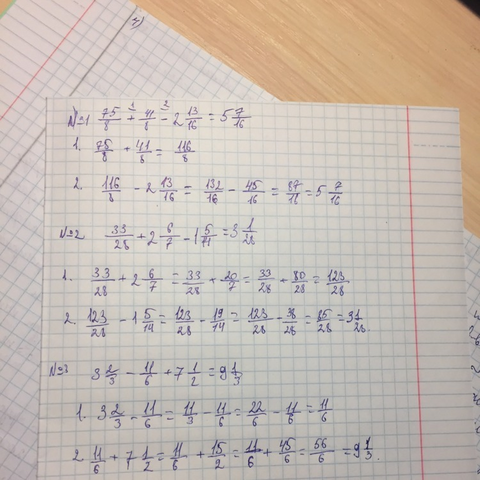 №1 75/8 + 41/8 - 2 13/16 = 5 7/16
1. 75/8 + 41/8 = 116/8
2. 116/8 - 2 13/16 = 132/16 - 45/16 = 87/16 = 5 7/16
№2 33/28 + 2 6/7 - 1 5/14 = 3 1/28
1. 33/28 + 2 6/7 = 33/28 + 20/7 = 33/28 + 80/28 = 123/28
2. 123/28 - 1 5/14 = 123/28 - 19/14 = 123/28 - 38/28 = 85/28 = 3 1/28
№3 3 2/3 - 11/6 + 7 1/2 = 9 1/3
1. 3 2/3 - 11/6 = 11/3 - 11/6 = 22/6 - 11/6 = 11/6
2 11/6 + 7 1/2 = 11/6 + 15/2 = 11/6 + 45/6 = 56/6 = 9 1/3.